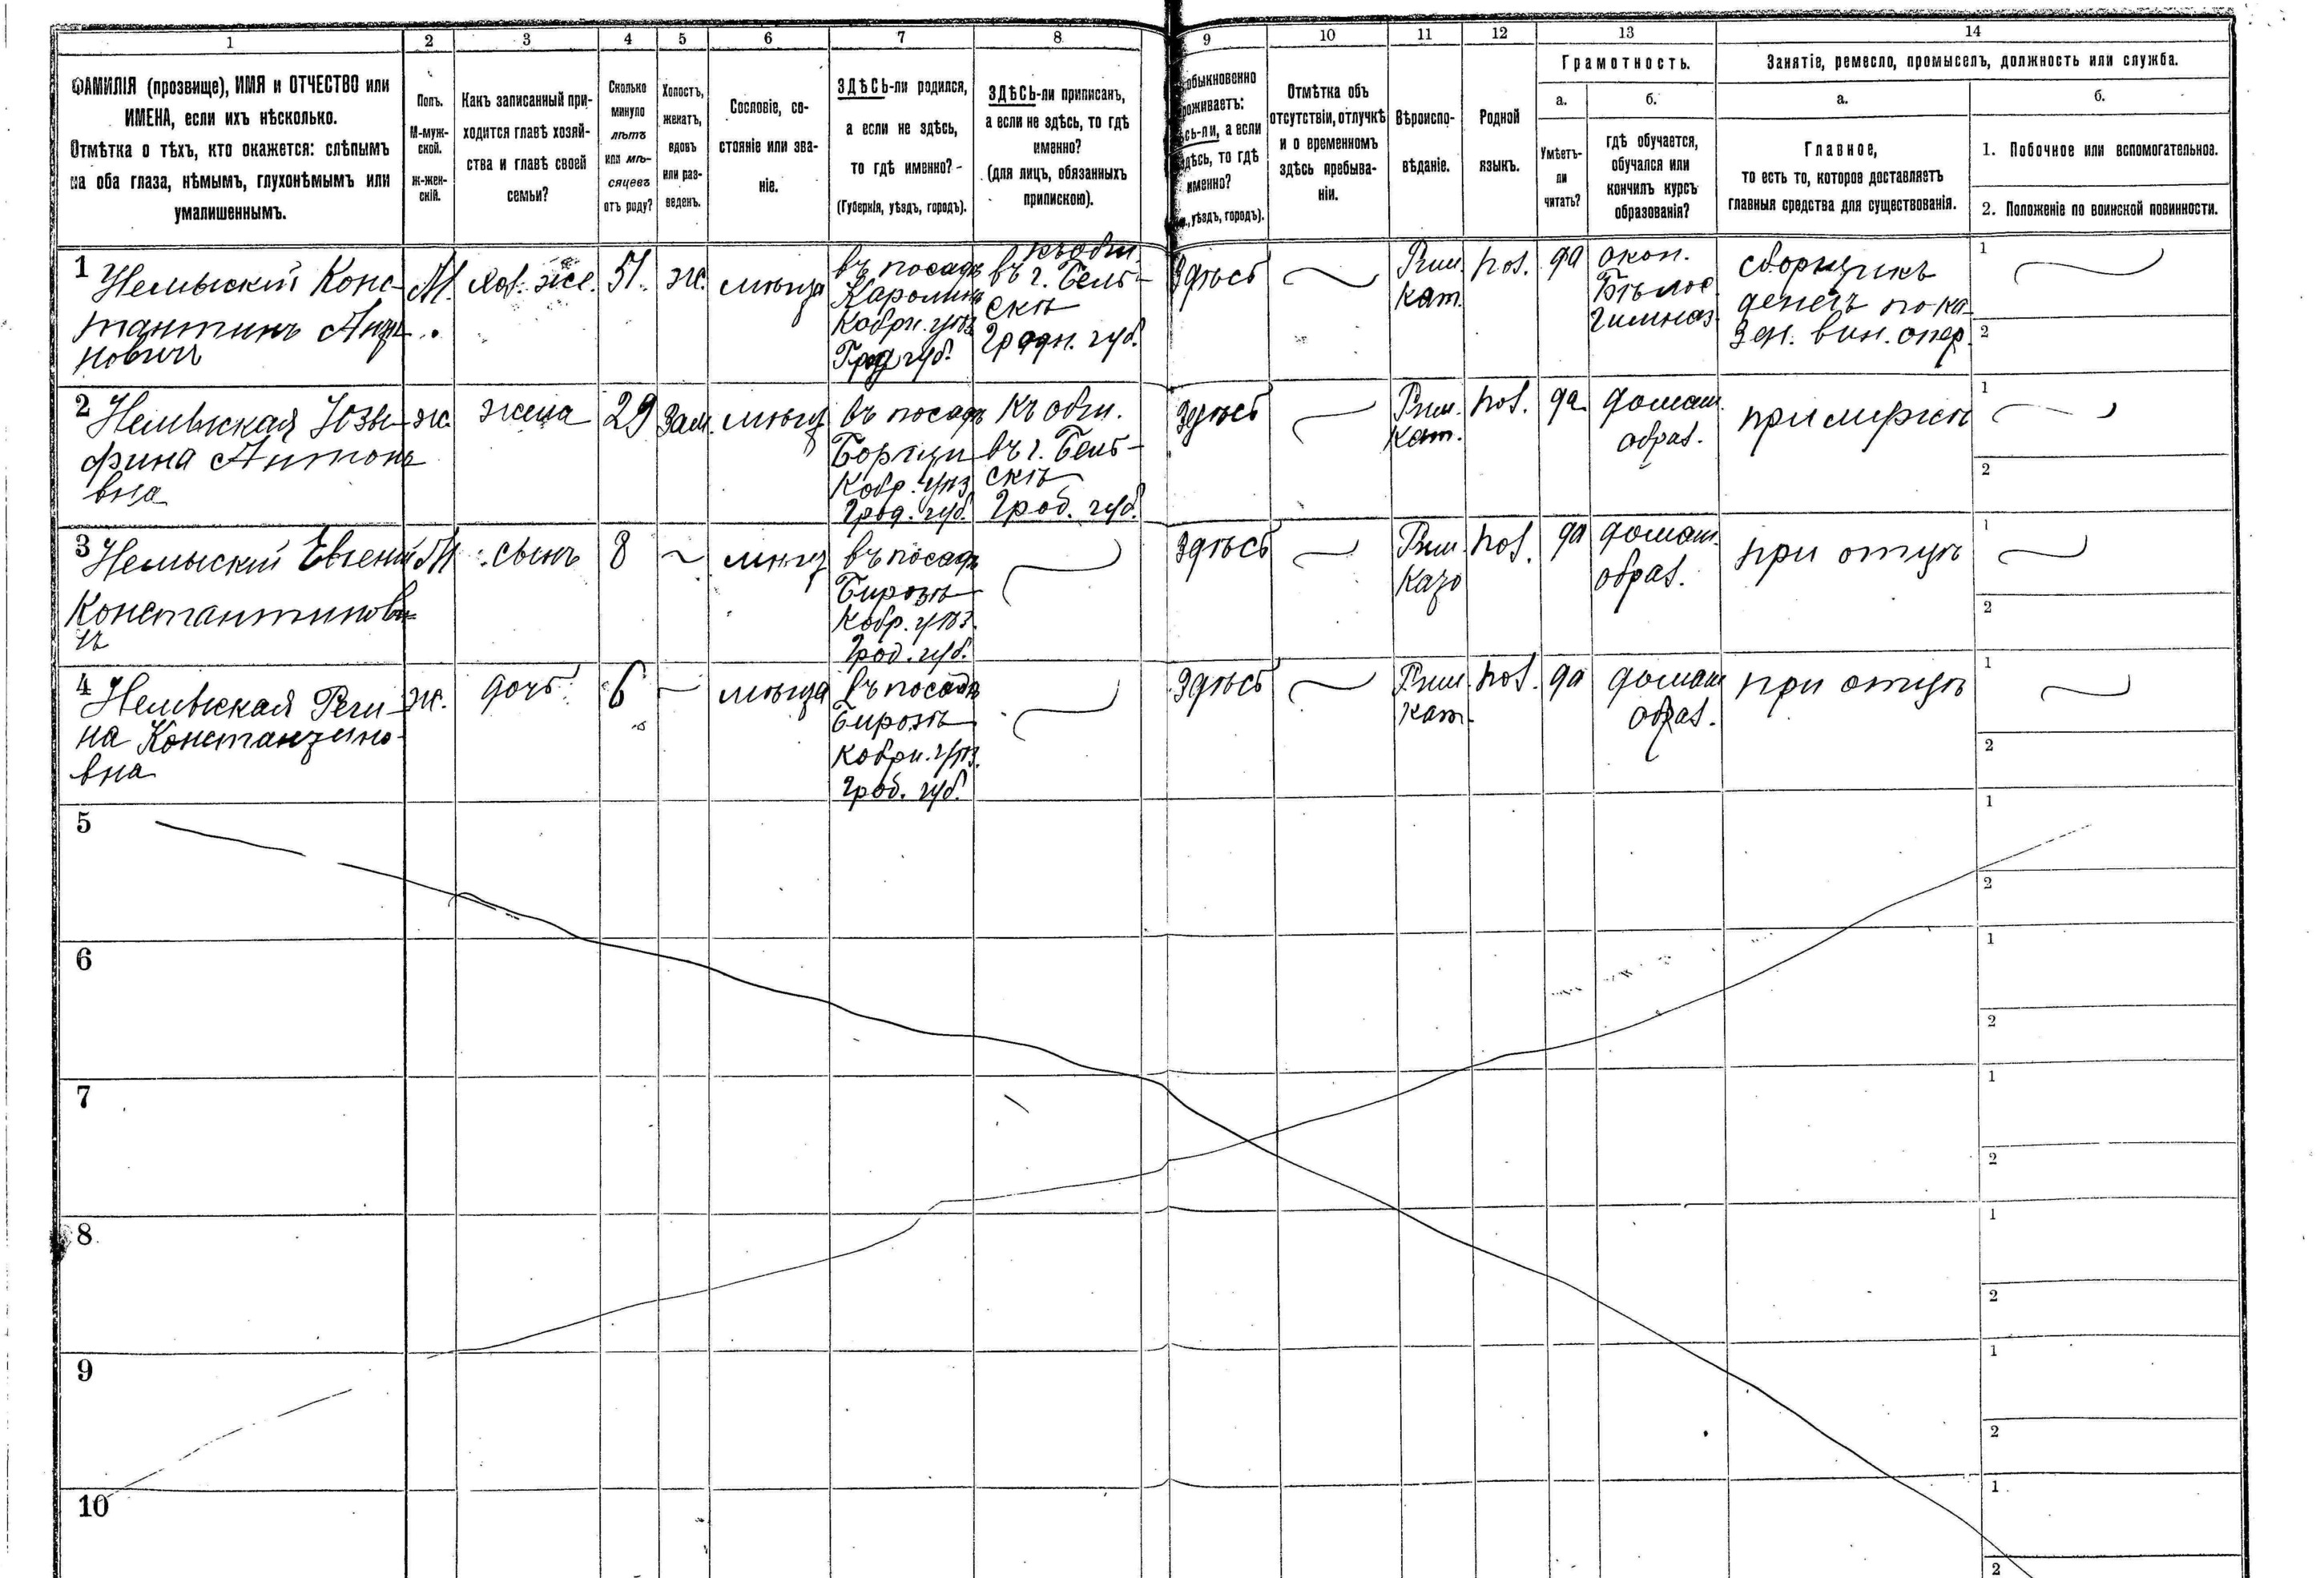 1 2 3 4 5 6 7 8 9 10 11 12 13 14
ФАМИЛІЯ (прозвище), ИМЯ и ОТЧЕСТВО или
ИМЕНА, если ихъ нѣсколько.
Отмѣтка о тѣхъ, кто окажется: слѣпымъ
на оба глаза, нѣмымъ, глухонѣмымъ или
умалишеннымъ.
Полъ.
М-муж-
ской.
ж-жен-
скій.
Какъ записанный при-
ходится главѣ хозяй-
ства и главѣ своей
семьи?
Сколько
минуло
лѣтъ
или мѣ-
сяцевъ
отъ роду?
Холостъ,
женатъ,
вдовъ
или раз-
веденъ.
Сословіе, со-
стояніе или зва-
ніе.
ЗДѢСЬ-ли родился,
а если не здѣсь,
то гдѣ именно?-
(Губернія, уѣздъ, городъ).
ЗДѢСЬ-ли приписанъ,
а если не здѣсь, то гдѣ
именно?
(для лицъ, обязанныхъ
припискою).
обыкновенно
роживаетъ:
ѣсь-ли, а если
здѣсь, то гдѣ
именно?
уѣздъ, городъ).
Отмѣтка объ
отсутствіи, отлучкѣ
и о временномъ
здѣсь пребыва-
ніи.
Вѣроиспо-
вѣданіе.
Родной
языкъ.
Грамотность.
а.
Умѣетъ-
ли
читать?
б.
гдѣ обучается,
обучался или
кончилъ курсъ
образованія?
Занятіе, ремесло, промыселъ, должность или служба.
а.
Главное,
то есть то, которое доставляетъ
главныя средства для существованія.
б.
1. Побочное или вспомогательное.
2. Положеніе по воинской повинности.
1
Константинъ
М.
51.
ж.
въ посадѣ
Кобрн. уѣз
Грод губ.
къ общ.
въ г. Бель-
скѣ
Гродн. губ.
здѣсь
Рим.
кат.
пол.
да
окон.
Бѣлос.
гимназ.
сборщикъ
денегъ по ка-
зен. вин. опер.
1
2
2
Антоно-
вна
ж.
жена
29
Зам.
въ посадѣ
Кобр. уѣз
Грод. губ.
къ общ.
въ г. Бель-
скѣ
Грод. губ.
здѣсь
Рим.
кат.
пол.
да
домаш.
образ.
при мужѣ
1
2
3
Евгеній
Константинови-
чъ
М
сынъ
8
въ посадѣ
Кобр. уѣз.
Грод. губ.
здѣсь
Рим.
пол.
да
домаш.
образ.
при отцѣ
1
2
4
Реги-
на Константино-
вна
ж.
дочь
6
въ посадѣ
Кобрн. уѣз.
Грод. губ.
здѣсь
Рим.
кат.
пол.
да
домаш
образ.
при отцѣ
1
2
5
1
2
6
1
2
7
1
2
8
1
2
9
1
2
10
1
2